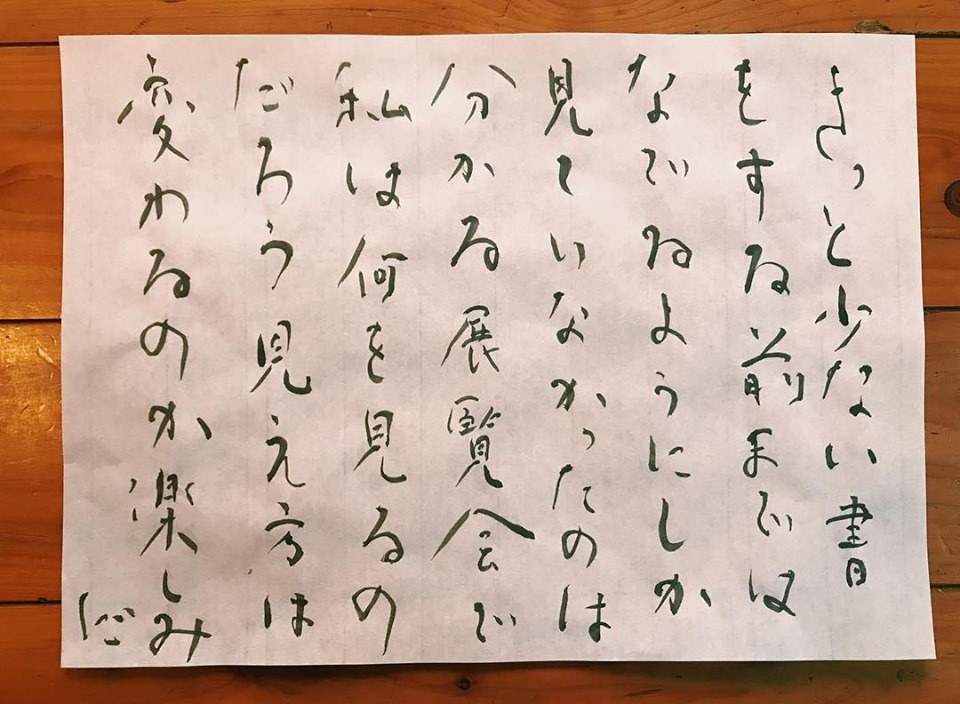 きっと少ない書
をする前までは
なでるようにしか
見ていなかったのは
分かる展覧会で
私は何を見るの
だろう見え方は
変わるのか楽しみ
だ